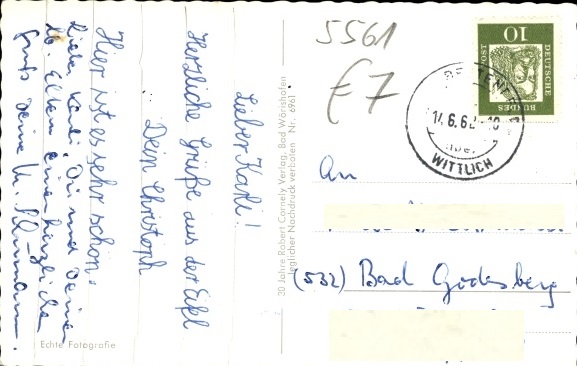 Lieber Karli!
Herzliche Grüße aus der Eifel
Dein Christoph
Hier ist es sehr schön.
Lieber Karli, Dir und Deinen
lb. Eltern einen herzlichen
Gruß Deine
Echte Fotografie
30 Jahre Robert Cornely, Verlag, Bad Wörishofen
Jeglicher Nachdruck verboten Nr. 6961
5561
£7
DEUTSCHE
BUNDES
POST
10
14.6.6
WITTLICH
An
(532) Bad Godesberg